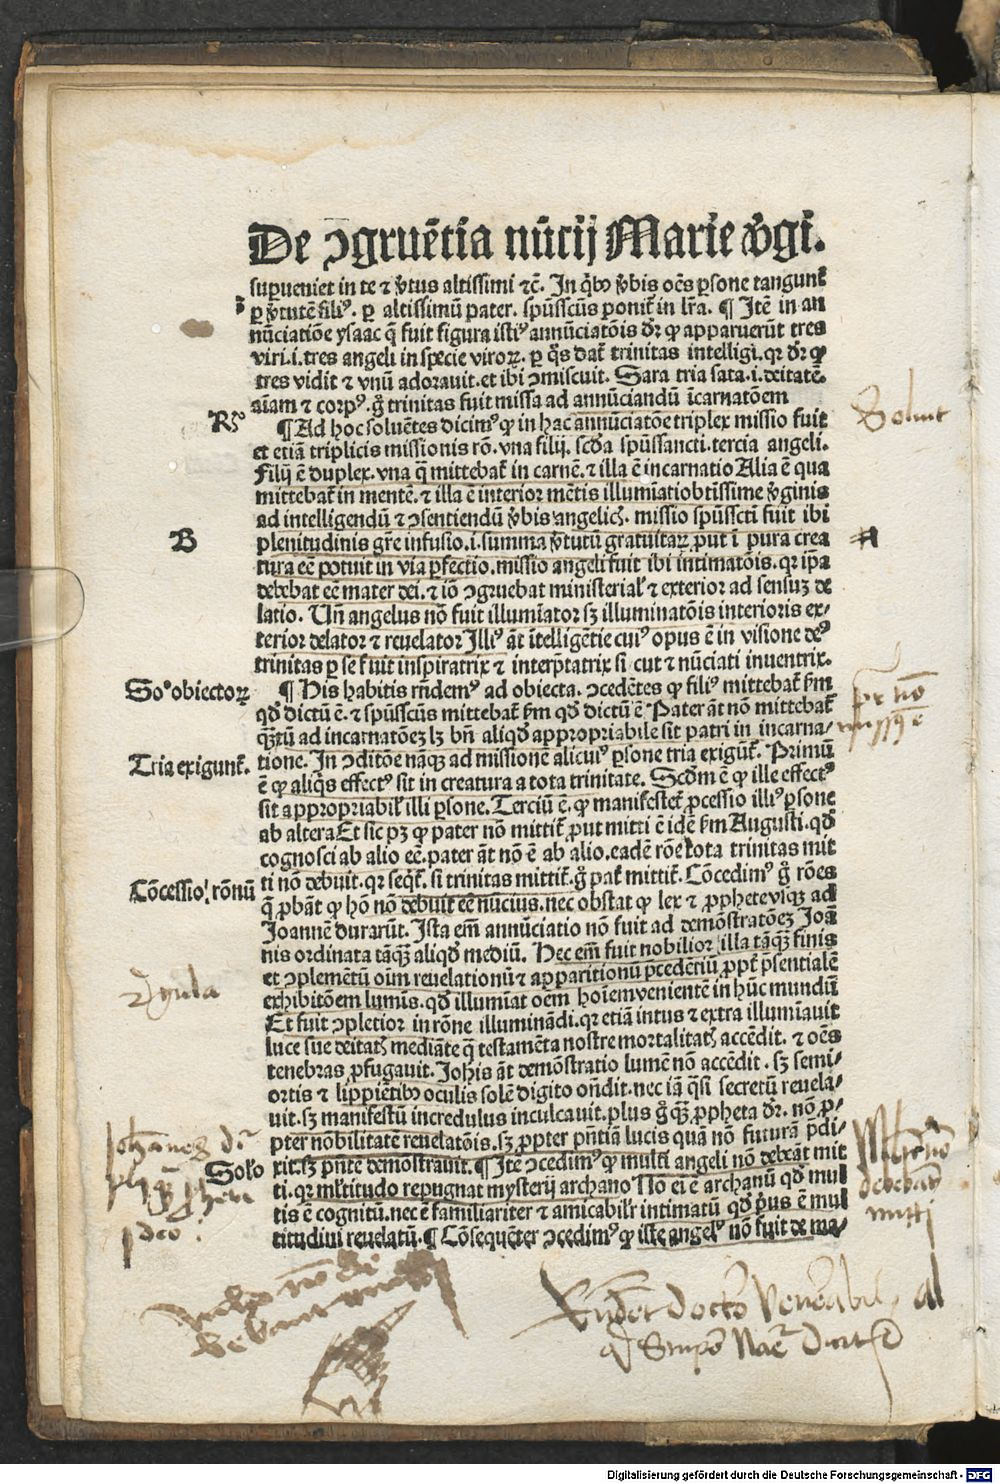 De ꝯgruētia nūcij Marie v̄gi.
superueniet in te ⁊ v̄tus altissimi ⁊c̄. In q̄bꝰ v̄bis oēs ꝑsone tangunt̄
ꝑ v̄tutē filiꝰ. ꝑ altissimū pater. spūsscūs ponit̄ in lr̄a. ¶ Itē in an
nūciatiōe ysaac q̄ fuit figura istiꝰ annūciatōis dr̄ ꝙ apparuerūt tres
viri .i. tres angeli in specie viroꝝ. ꝑ q̄s dat̄ trinitas intelligi. qꝛ dr̄ ꝙ
tres vidit ⁊ vnū adorauit. et ibi ꝯmiscuit. Sara tria sata .i. deitatē.
aīam ⁊ corpꝰ. g̊ trinitas fuit missa ad annūciandū īcarnatōem
Rº
¶ Ad hoc soluētes dicimꝰ ꝙ in hac annūciatōe triplex missio fuit
Soluit
et etiā triplicis missionis rō. vna filij. scd̄a spūssancti. tercia angeli.
Filij ē duplex. vna q̄ mittebat̄ in carnē. ⁊ illa ē incarnatio Alia ē qua
mittebat̄ in mentē. ⁊ illa ē interior mētis illumīatio btīssime v̄ginis
ad intelligendū ⁊ ꝯsentiendū v̄bis angelicꝭ. missio spūsscti fuit ibi
B
plenitudinis gr̄e infusio .i. summa v̄tutū gratuitaꝝ ꝓut ī pura crea
tura eē potuit in via ꝑfectio. missio angeli fuit ibi intimatōis. qꝛ ip̄a
debebat eē mater dei. ⁊ iō ꝯgruebat ministerial̄ ⁊ exterior ad sensuꝫ de
latio. Un̄ angelus nō fuit illumīator sꝫ illuminatōis interioris ex-
terior delator ⁊ reuelator Illiꝰ āt ītelligētie cuiꝰ opus ē in visione deꝰ
trinitas ꝑ se fuit inspiratrix ⁊ interp̄tatrix si cut ⁊ nūciati inuentrix.
Soº obiectoꝝ
¶ His habitis rn̄demꝰ ad obiecta. ꝯcedētes ꝙ filiꝰ mittebat̄ ẜm
qd̄ dictū ē. ⁊ spūsscūs mittebat̄ ẜm qd̄ dictū ē Pater āt nō mittebat̄
pr̄ nō
missꝰ ē
q̄ꝫtū ad incarnatōeꝫ lꝫ bn̄ aliqd̄ appropriabile sit patri in incarna-
Tria exigunt̄.
tione. In ꝯditōe nāqꝫ ad missionē alicuiꝰ ꝑsone tria exigūt̄. Primū
ē ꝙ aliq̄s effectꝰ sit in creatura a tota trinitate. Scd̄m ē ꝙ ille effectꝰ
sit appropriabil̄ illi ꝑsone. Terciū ē. ꝙ manifestet̄ ꝓcessio illiꝰ ꝑsone
ab altera Et sic pꝫ ꝙ pater nō mittit̄ ꝓut mitti ē idē ẜm Augusti. qd̄
cognosci ab alio eē. pater āt nō ē ab alio. eadē rōe tota trinitas mit
Cōcessio rōnū
ti nō debuit. qꝛ seqt̄. si trinitas mittit̄. g̊ pat̄ mittit̄. Cōcedimꝰ g̊ rōes
q̄ ꝓbāt ꝙ hō nō debuit eē nūcius. nec obstat ꝙ lex ⁊ ꝓphete vsqꝫ ad
Joannē durarūt. Ista em̄ annūciatio nō fuit ad demōstratōeꝫ Joā
nis ordinata tāqꝫ aliqd̄ mediū. Hec em̄ fuit nobilior illa tāqꝫ finis
et ꝯplemētū oīm reuelationū ⁊ apparitionū p̄cedētiū ꝓpt̄ p̄sentialē
Rgula
exhibitōem lumīs. qd̄ illumīat oēm hoīem venientē in hūc mundū
Et fuit ꝯpletior in rōne illuminādi. qꝛ etiā intus ⁊ extra illumīauit
luce sue deitatꝭ mediāte q̄ testamēta nostre mortalitatꝭ accēdit. ⁊ oēs
tenebras ꝓfugauit. Johīs āt demōstratio lumē nō accēdit. sꝫ semi-
ortis ⁊ lippiētibꝰ oculis solē digito on̄dit. nec iā q̄si secretū reuela-
uit. sꝫ manifestū incredulus inculcauit. plus g̊ qꝫ ꝓpheta dr̄. nō ꝓ-
Johānes dr̄
plꝰ qꝫ ꝓpheta
pter nobilitatē reuelatōis. sꝫ ꝓpter pn̄tiā lucis quā nō futurā p̄di-
Soło
xit. sꝫ pn̄te demōstrauit. ¶ Itē ꝯcedimꝰ ꝙ multi angeli nō debeāt mit
Ml̄ti nō
debebāt
mitti
ti. qꝛ ml̄titudo repugnat mysterij archano Nō ei ē archanū qd̄ mul
tis ē cognitū. nec ē familiariter ⁊ amicabilr̄ intimatū qd̄ p̄us ē mul
titudini reuelatū. ¶ Cōsequēter ꝯcedimꝰ ꝙ iste angelꝰ nō fuit de ma-